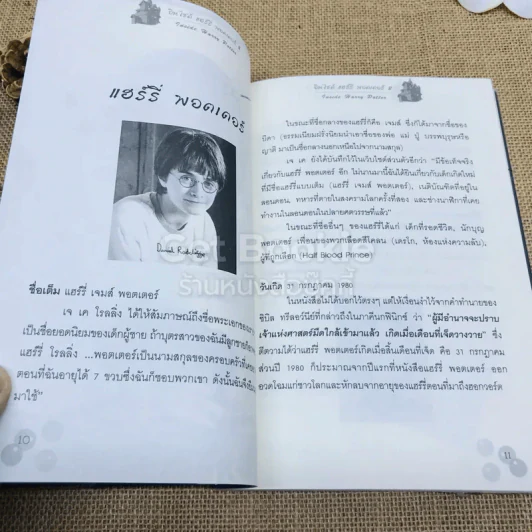 อินไซด์ แฮร์รี่ พอตเตอร์ 2
Inside Harry Potter
แฮร์รี่ พอตเตอร์
Daniel Radcliffe
ชื่อเต็ม แฮร์รี่ เจมส์ พอตเตอร์
เจ เค โรลลิ่ง ได้ให้สัมภาษณ์ถึงชื่อพระเอกของ
เป็นชื่อยอดนิยมของเด็กผู้ชาย ถ้าบุตรสาวของฉันมีลูกชาย
แฮร์รี่ โรลลิ่ง ...พอตเตอร์เป็นนามสกุลของครอบครัวที่
ตอนที่ฉันอายุได้ 7 ขวบซึ่งฉันก็ชอบพวกเขา ดังนั้นฉันจึง
มาใช้"
10
อินไซด์ แฮร์รี่ พอตเตอร์ 2
Inside Harry Potter
ในขณะที่ชื่อกลางของแฮร์รี่ก็คือ เจมส์ ซึ่งก็ได้มาจากชื่อของ
บิดา (ธรรมเนียมฝรั่งนิยมนำเอาชื่อของพ่อ แม่ ปู่ บรรพบุรุษหรือ
ญาติ มาเป็นชื่อกลางนอกเหนือไปจากนามสกุล)
เจ เค ยังได้บันทึกไว้ในเว็บไซต์ส่วนตัวอีกว่า "มีข้อเท็จจริง
เกี่ยวกับแฮร์รี่ พอตเตอร์ อีก ไม่นานมานี้ฉันได้ยินเกี่ยวกับเด็กเกิดใหม่
ที่มีชื่อแฮร์รี่แบบเต็ม (แฮร์รี่ เจมส์ พอตเตอร์), เนติบัณฑิตที่อยู่ใน
ลอนดอน, ทหารที่ตายในสงครามโลกครั้งที่สอง และช่างนาฬิกาที่เคย
ทำงานในลอนดอนในปลายศตวรรษที่แล้ว"
ในขณะที่ชื่ออื่นๆ ของแฮร์รี่ได้แก่ เด็กที่รอดชีวิต, นักบุญ
พอตเตอร์, เพื่อนของพวกเลือดสีโคลน (เดรโก, ห้องแห่งความลับ),
ผู้ที่ถูกเลือก (Half Blood Prince)
วันเกิด 31 กรกฎาคม 1980
ในหนังสือไม่ได้บอกไว้ตรงๆ แต่ให้เงื่อนงำไว้จากคำทำนายของ
ซิบิล ทรีลอว์นีย์ที่กล่าวถึงในภาคีนกฟินิกซ์ ว่า "ผู้มีอำนาจจะปราบ
เจ้าแห่งศาสตร์มืดใกล้เข้ามาแล้ว เกิดเมื่อเดือนที่เจ็ดวางวาย" ซึ่ง
ตีความได้ว่าแฮร์รี่ พอตเตอร์เกิดเมื่อสิ้นเดือนที่เจ็ด คือ 31 กรกฎาคม
ส่วนปี 1980 ก็ประมาณจากปีแรกที่หนังสือแฮร์รี่ พอตเตอร์ ออก
อวดโฉมแก่ชาวโลกและหักลบจากอายุของแฮร์รี่ตอนที่มาถึงฮอกวอร์ต
11
Get Bookie
ร้านหนังสือเก็ตบุ๊กกี้